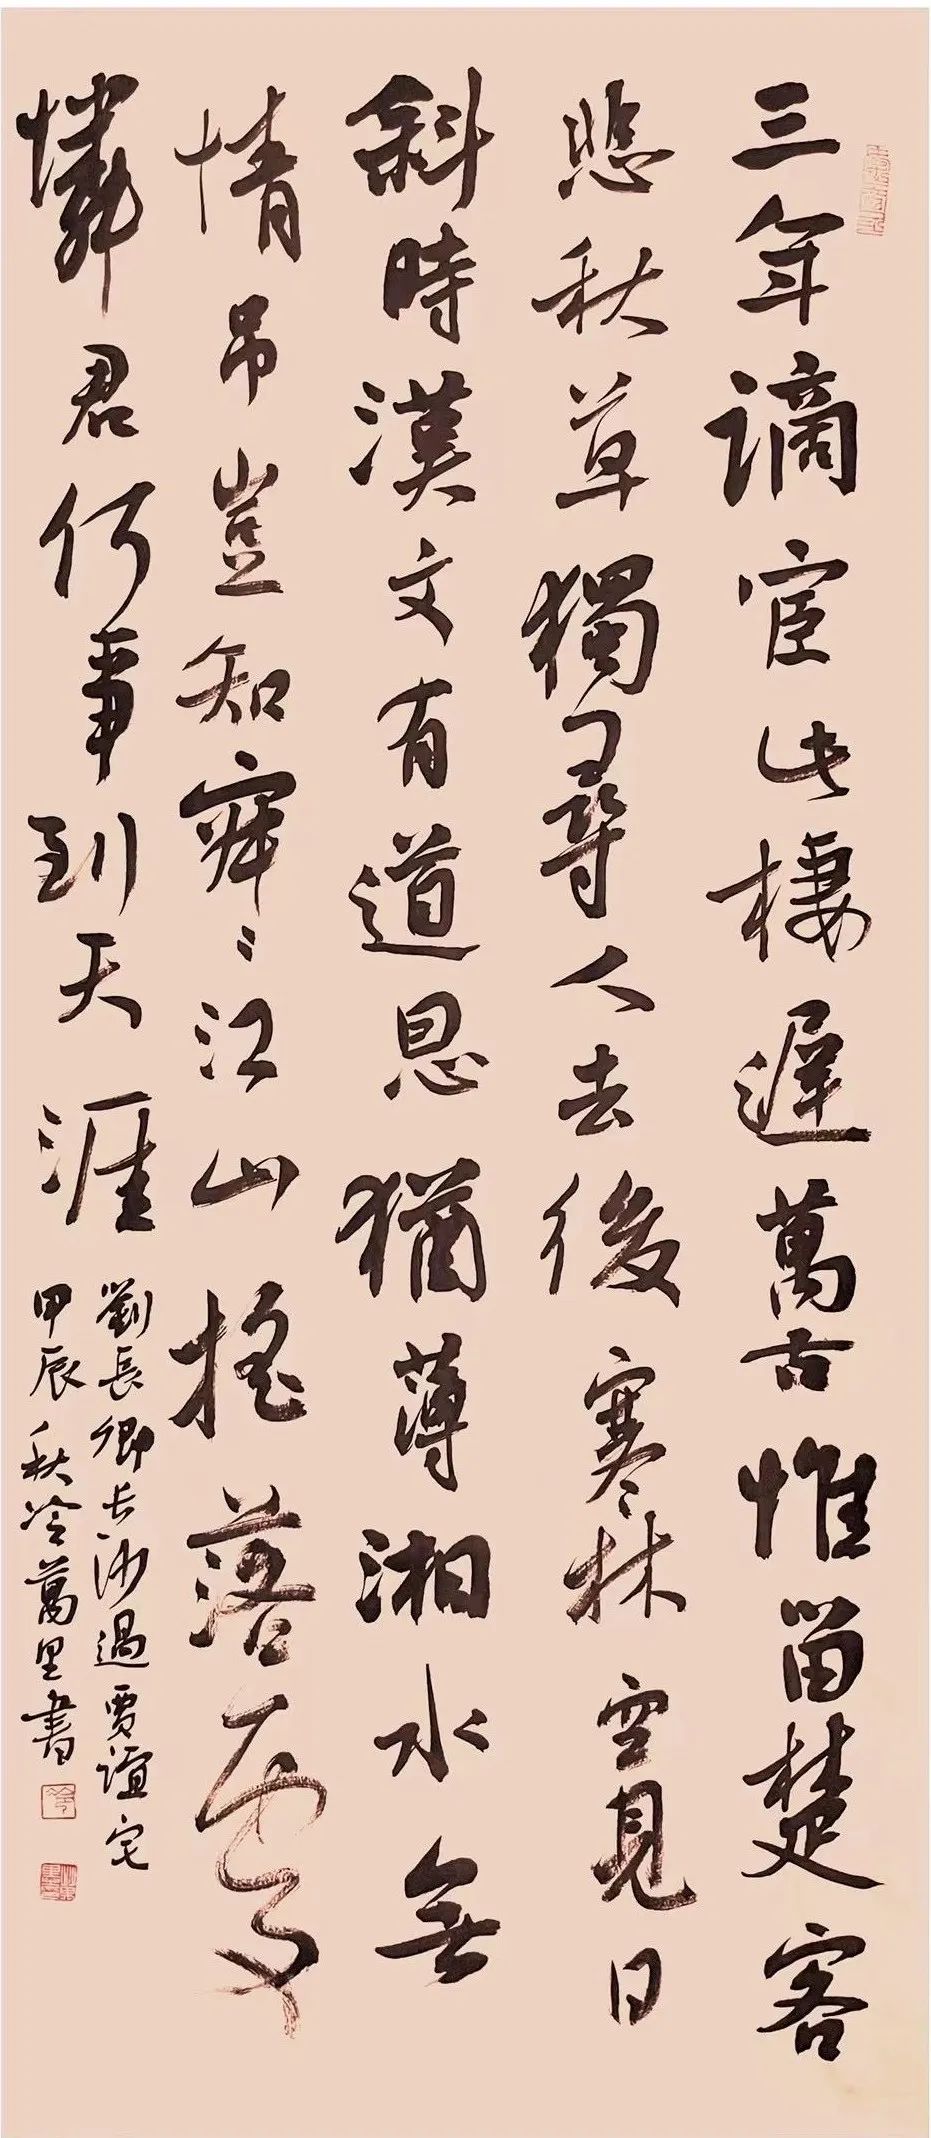 三年謫宦此棲遲萬古惟留楚客
悲秋草獨尋人去後寒林空見日
斜時漢文有道恩猶薄湘水無
情吊豈知寂々江山搖落處
憐君何事到天涯
劉長卿長沙過賈誼宅
甲辰秋冷萬里書